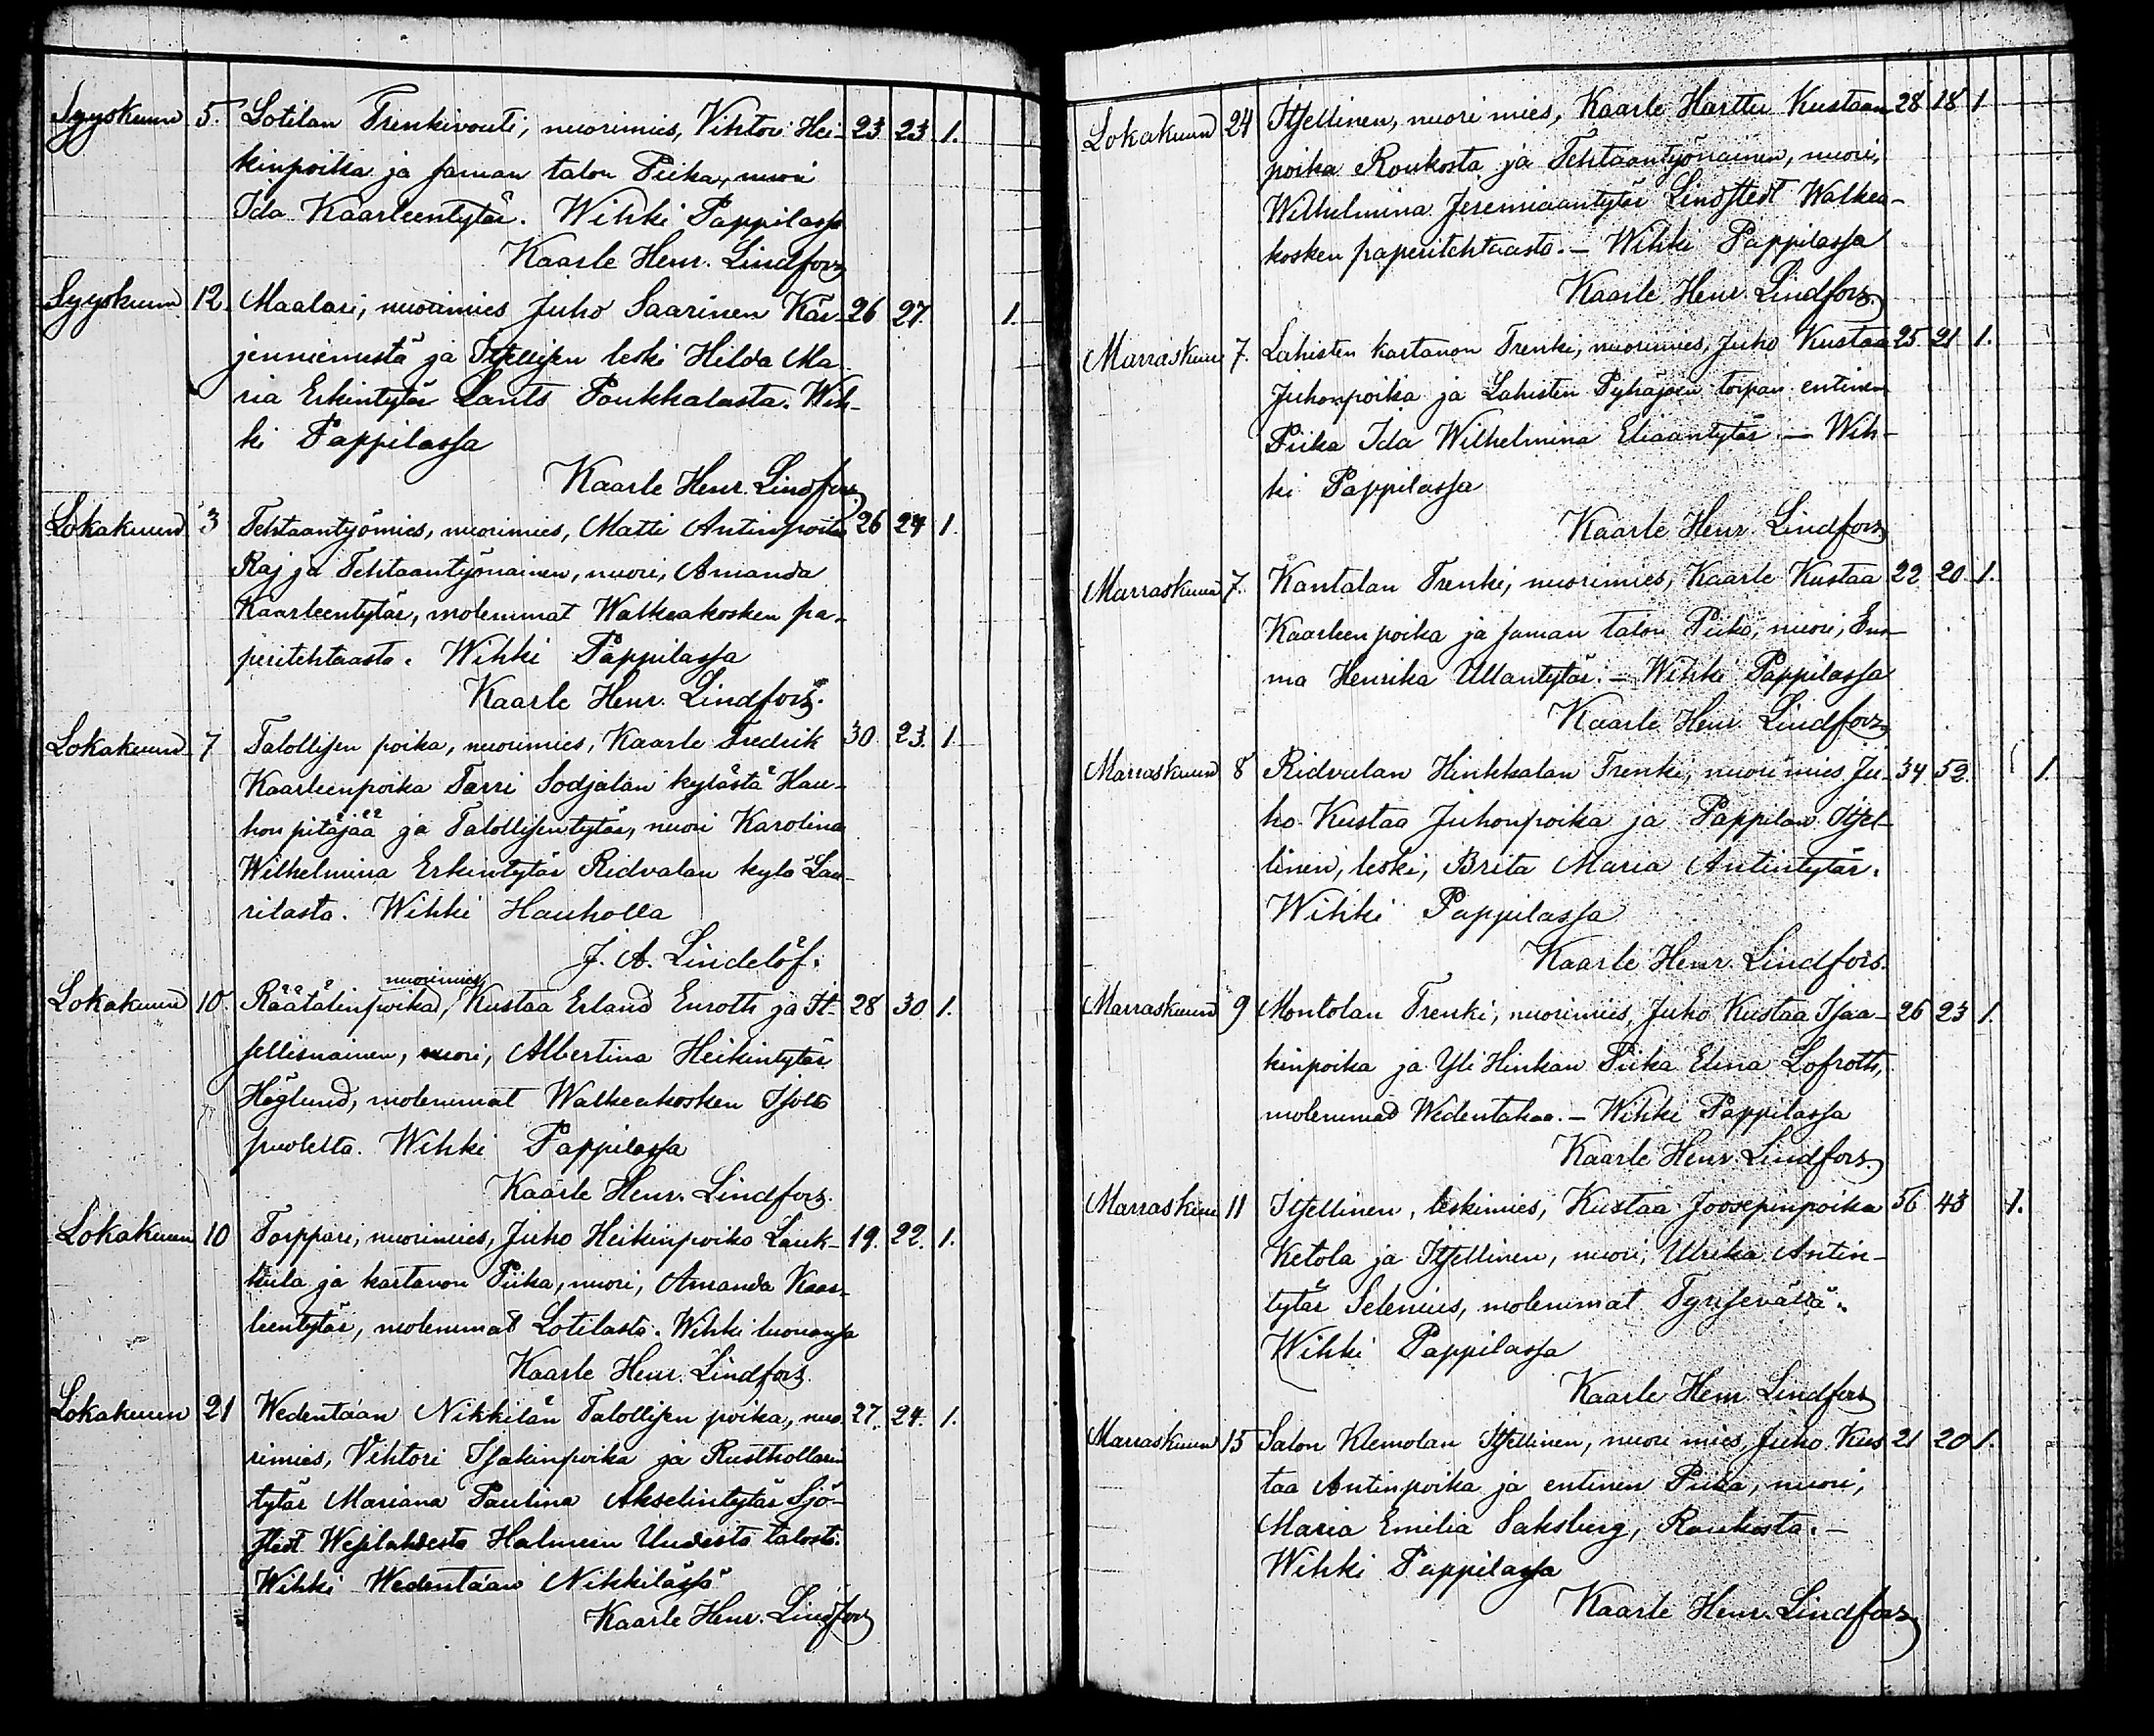 Syyskuun 5. Lotilan Trenkivouti, nuorimies, Vihtori Hei- 23 23 1.
kinpoika ja saman talon Piika, nuori
Ida Kaarleentytär. Wihki Pappilassa
Kaarle Henr. Lindfors
Syyskuun 12. Maalari, nuorimies Juho Saarinen Kär- 26 27. 1.
jenniemestä ja Itsellisen leski Hilda Ma-
ria Erkintytär Lants Poukkalasta. Wih-
ki Pappilassa
Kaarle Henr. Lindfors.
Lokakuun 3 Tehtaantyömies, nuorimies, Matti Antinpoika 26 24 1.
Raj ja Tehtaantyönainen, nuori, Amanda
Kaarleentytär, molemmat Walkeakosken pa-
peritehtaasta. Wihki Pappilassa
Kaarle Henr. Lindfors.
Lokakuun 7 Talollisen poika, nuorimies, Kaarle Fredrik 30. 23. 1.
Kaarleenpoika Tarri Sodjalan kylästä Hau-
hon pitäjää ja Talollisentytär, nuori Karolina
Wilhelmina Erkintytär Ridvalan kylä Lau-
rilasta. Wihki Hauholla
J. A. Lindelöf.
nuorimies
Lokakuun 10. Räätälinpoika, Kustaa Erland Enroth ja It- 28 30 1.
sellisnainen, nuori, Albertina Heikintytär
Höglund, molemmat Walkeakosken Isolta
puolelta. Wihki Pappilassa
Kaarle Henr. Lindfors.
Lokakuun 10 Torppari, nuorimies, Juho Heikinpoika Lauk- 19. 22. 1.
kula ja kartanon Piika, nuori, Amanda Kaar-
leentytär, molemmat Lotilasta. Wihki luonansa
Kaarle Henr. Lindfors.
Lokakuun 21 Wedentaan Nikkilän Talollisen poika, nuo- 27. 24. 1.
rimies, Vihtori Isakinpoika ja Rusthollarin
tytär Mariana Paulina Akselintytär Sjö-
stedt Wesilahdesta Halmeen Uudesta talosta.
Wihki Wedentaan Nikkilässä
Kaarle Henr. Lindfors
Lokakuun 24 Itsellinen, nuori mies, Kaarle Harttu Kustaan 28 18 1
poika Roukosta ja Tehtaantyönainen, nuori,
Wilhelmina Jeremiaantytär Lindstedt Walkea-
kosken paperitehtaasta. - Wihki Pappilassa
Kaarle Henr. Lindfors.
Marraskuun 7. Lahisten kartanon Trenki, nuorimies, Juho Kustaa 25. 21 1.
Juhonpoika ja Lahisten Pyhäjoen torpan entinen
Piika Ida Wilhelmina Eliaantytär. - Wih-
ki Pappilassa
Kaarle Henr. Lindfors
Marraskuun 7. Kantalan Trenki, nuorimies, Kaarle Kustaa 22 20 1.
Kaarleenpoika ja saman talon Piika, nuori, Em-
ma Henrika Ullantytär. - Wihki Pappilassa
Kaarle Henr. Lindfors
Marraskuun 8 Ridvalan Hinkkalan Trenki, nuori mies, Ju- 34. 52. 1.
ho Kustaa Juhonpoika ja Pappilan Itsel-
linen, leski, Brita Maria Antintytär.
Wihki Pappilassa
Kaarle Henr. Lindfors.
Marraskuun 9 Montolan Trenki, nuorimies, Juho Kustaa Isaa- 26 23 1.
kinpoika ja Yli Hinkan Piika Elina Lofroth,
molemmat Wedentakaa. - Wihki Pappilassa
Kaarle Henr. Lindfors.
Marraskuun 11 Itsellinen, leskimies, Kustaa Joosepinpoika 56 43 1.
Ketola ja Itsellinen, nuori, Ulrika Antin-
tytär Selenius, molemmat Tyrisevältä.
Wihki Pappilassa
Kaarle Henr. Lindfors
Marraskuun 15 Salon Klemolan Itsellinen, nuori mies, Juho Kus 21 20 1.
taa Antinpoika ja entinen Piika, nuori,
Maria Emilia Saksberg, Roukosta. -
Wihki Pappilassa
Kaarle Henr. Lindfors